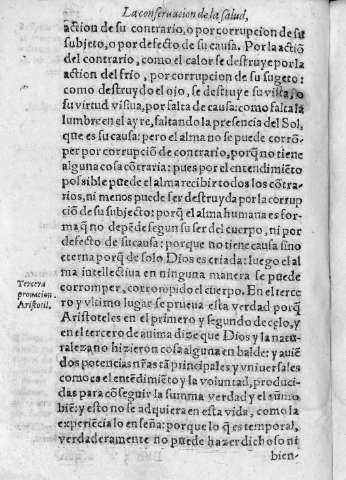 La conseruacion de la salud,
action de su contrario, o por corrupcion de su
subjeto, o por defecto de su causa. Por la actiõ
del contrario, como el calor se destruye por la
action del frio, por corrupcion de su sugeto:
como destruydo el ojo, se destruye su vista, o
su virtud visiua, por falta de causa: como falta la
lumbre en el ayre, faltando la presencia del Sol,
que es su causa: pero el alma no se puede corrõ-
per por corrupciõ de contrario, porq̃ no tiene
alguna cosa cõtraria: pues por el entendimiẽto
possible puede el alma recibir todos los cõtra-
rios, ni menos puede ser destruyda por la corrup
ciõ de su subjecto: porq̃ el alma humana es for-
ma q̃ no depẽde segun su ser del cuerpo, ni por
defecto de su causa: porque no tiene causa sino
eterna porq̃ de solo Dios es criada: luego el al
ma intellectiua en ninguna manera se puede
corromper, corrompido el cuerpo. En el terce
ro y vltimo lugar se prueua esta verdad porq̃
Aristoteles en el primero y segundo de cęlo, y
en el tercero de anima dize que Dios y la natu-
raleza no hizieron cosa alguna en balde: y auiẽ
dos potencias nr̃as tã principales y vniuersales
como es el entẽdimiẽto y la voluntad, produci-
das para cõseguir la summa verdad y el sũmo
biẽ: y esto no se adquiera en esta vida, como la
experiẽcia lo enseña: porque lo q̃ es temporal,
verdaderamente no puede hazer dichoso ni
bien-
Tercera
prouacion.
Aristotil.